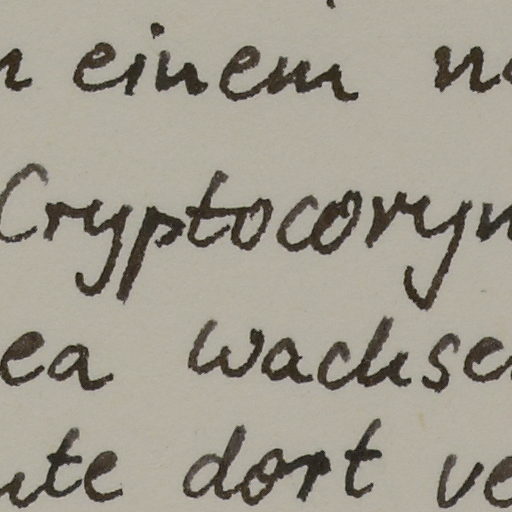 n einem
Cryptocoryn
ea wachse
ute dort ve